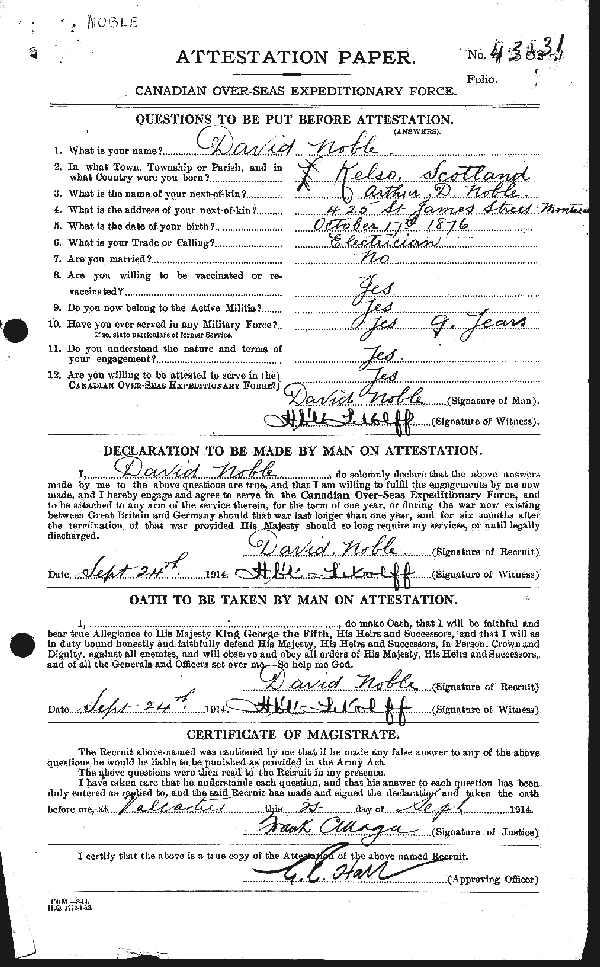 NOBLE
ATTESTATION PAPER.
No.
Folio.
CANADIAN OVER-SEAS EXPEDITIONARY FORCE.
QUESTIONS TO BE PUT BEFORE ATTESTATION.
(ANSWERS).
1. What is your name? David Noble
2. In what Town, Township or Parish, and in what Country were you born? Kelso, Scotland
3. What is the name of your next-of-kin? Arthur D. Noble.
4. What is the address of your next-of-kin? 425 St James Street Montreal
5. What is the date of your birth? October 17th 1876
6. What is your Trade or Calling? Electrician
7. Are you married? No
8. Are you willing to be vaccinated or re-vaccinated? Yes
9. Do you now belong to the Active Militia? Yes
10. Have you ever served in any Military Force? Yes 9. Years
If so, state particulars of former Service.
11. Do you understand the nature and terms of your engagement? Yes.
12. Are you willing to be attested to serve in the CANADIAN OVER-SEAS EXPEDITIONARY FORCE? Yes
David Noble (Signature of Man).
(Signature of Witness).
DECLARATION TO BE MADE BY MAN ON ATTESTATION.
I, David Noble, do solemnly declare that the above answers
made by me to the above questions are true, and that I am willing to fulfil the engagements by me now
made, and I hereby engage and agree to serve in the Canadian Over-Seas Expeditionary Force, and
to be attached to any arm of the service therein, for the term of one year, or during the war now existing
between Great Britain and Germany should that war last longer than one year, and for six months after
the termination of that war provided His Majesty should so long require my services, or until legally
discharged.
David Noble (Signature of Recruit).
Date Sept 24th 1914. (Signature of Witness)
OATH TO BE TAKEN BY MAN ON ATTESTATION.
I, , do make Oath, that I will be faithful and
bear true Allegiance to His Majesty King George the Fifth, His Heirs and Successors, and that I will as
in duty bound honestly and faithfully defend His Majesty, His Heirs and Successors, in Person, Crown and
Dignity, against all enemies, and will observe and obey all orders of His Majesty, His Heirs and Successors,
and of all the Generals and Officers set over me. So help me God.
David Noble (Signature of Recruit)
Date Sept 24th 1914. (Signature of Witness)
CERTIFICATE OF MAGISTRATE.
The Recruit above-named was cautioned by me that if he made any false answer to any of the above
questions he would be liable to be punished as provided in the Army Act.
The above questions were then read to the Recruit in my presence.
I have taken care that he understands each question, and that his answer to each question has been
duly entered as replied to, and the said Recruit has made and signed the declaration and taken the oath
before me, at Valcartier this 25 day of Sept 1914.
(Signature of Justice)
I certify that the above is a true copy of the Attestation of the above named Recruit.
(Approving Officer)